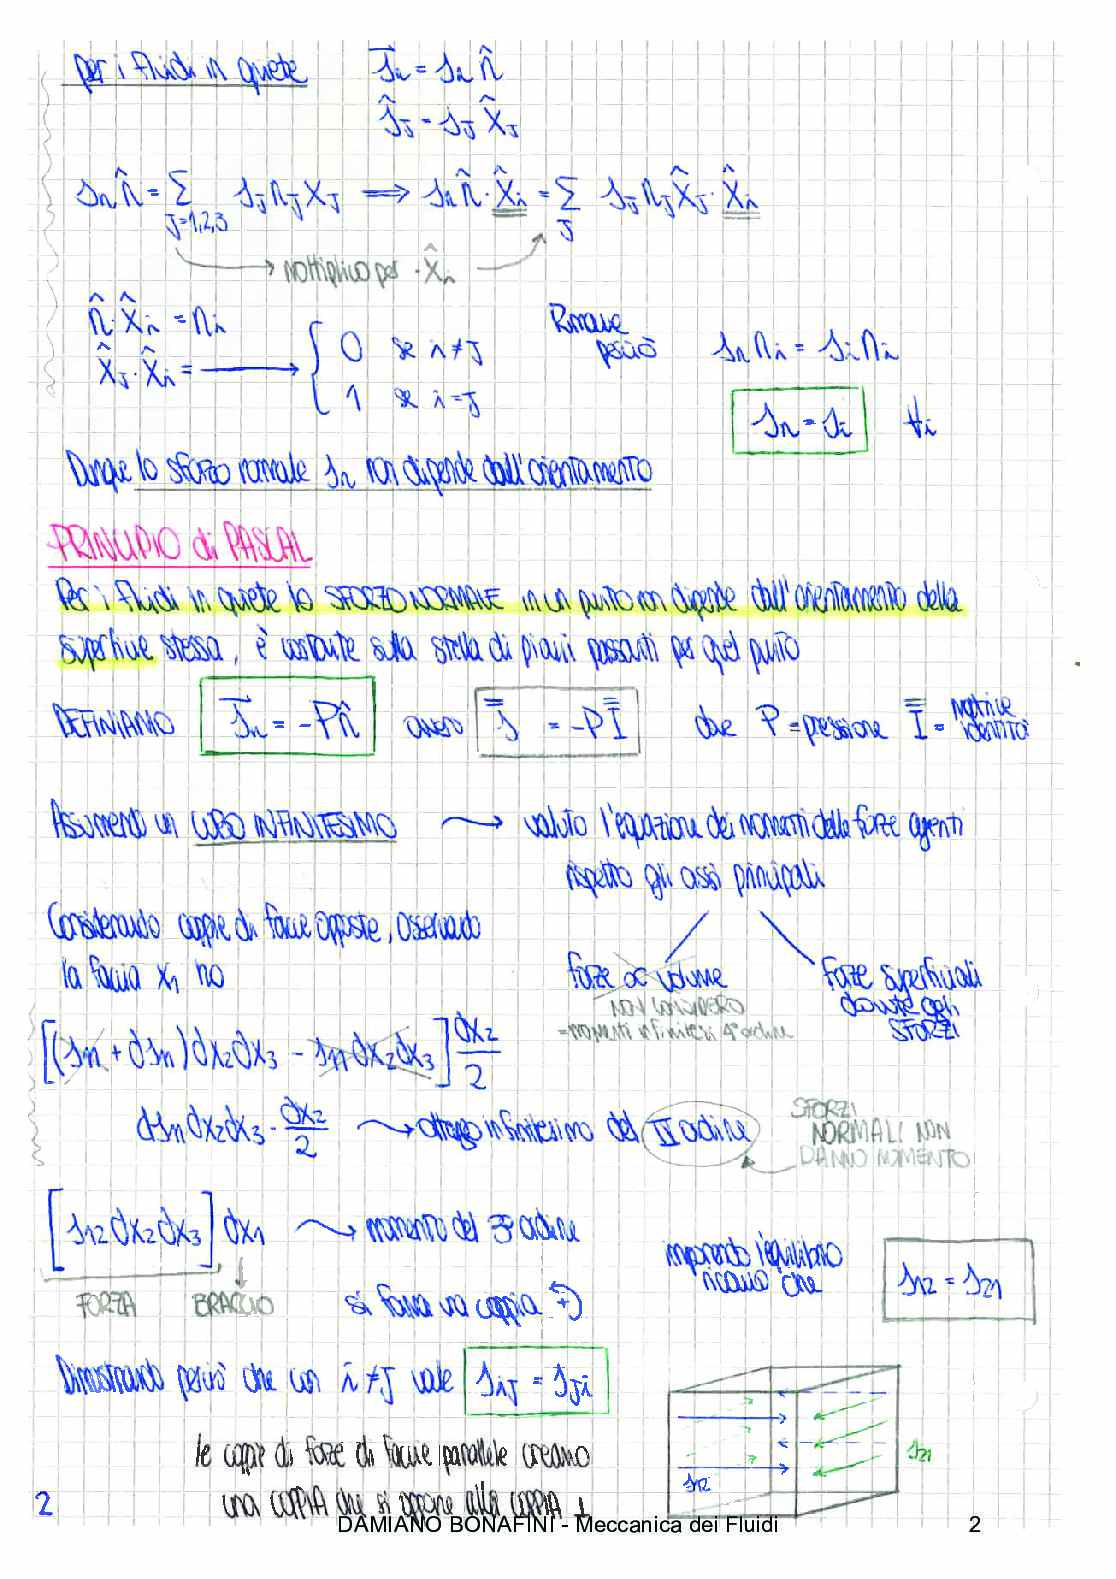 per i fluidi in quiete    s̄ₙ = sₙ n̂
ŝⱼ = sⱼ x̂ⱼ
sₙ n̂ = Σ_{J=1,2,3} sⱼ nⱼ xⱼ ⟹ sₙ n̂ · x̂ᵢ = Σ_J sⱼ nⱼ x̂ⱼ · x̂ᵢ
moltiplico per · x̂ᵢ
n̂ · x̂ᵢ = nᵢ
x̂ⱼ · x̂ᵢ = → { 0 se i ≠ J
1 se i = J
Rimane perciò    sₙ nᵢ = sᵢ nᵢ
sₙ = sᵢ    ∀i
Dunque lo sforzo normale sₙ non dipende dall'orientamento
PRINCIPIO di PASCAL
Per i fluidi in quiete lo SFORZO NORMALE in un punto non dipende dall'orientamento della
superficie stessa, è costante sulla stella di piani passanti per quel punto
DEFINIAMO    s̄ₙ = -P n̂    ovvero    s̿ = -P I̿    dove P = pressione    I̿ = matrice identità
Assumendo un CUBO INFINITESIMO → valuto l'equazione dei momenti delle forze agenti
rispetto gli assi principali
Considerando coppie di facce opposte, osservando
la faccia x₁ ho
forze ∝ volume
NON CONSIDERO
= momenti infinitesimi 4° ordine
forze superficiali
dovute agli
SFORZI
[(s₁₁ + ds₁₁) dx₂dx₃ - s₁₁ dx₂dx₃] dx₂/2
ds₁₁ dx₂dx₃ · dx₂/2 → ottengo infinitesimo del IV ordine
SFORZI
NORMALI NON
DANNO MOMENTO
[s₁₂ dx₂dx₃] dx₁ → momento del 3° ordine
FORZA    BRACCIO    si forma una coppia +
imponendo l'equilibrio
ricavo che    s₁₂ = s₂₁
Dimostrando perciò che con i ≠ J vale    sᵢⱼ = sⱼᵢ
le coppie di forze di facce parallele creano
una COPPIA che si oppone alla COPPIA ⊥
s₁₂
s₂₁
2
DAMIANO BONAFINI - Meccanica dei Fluidi    2